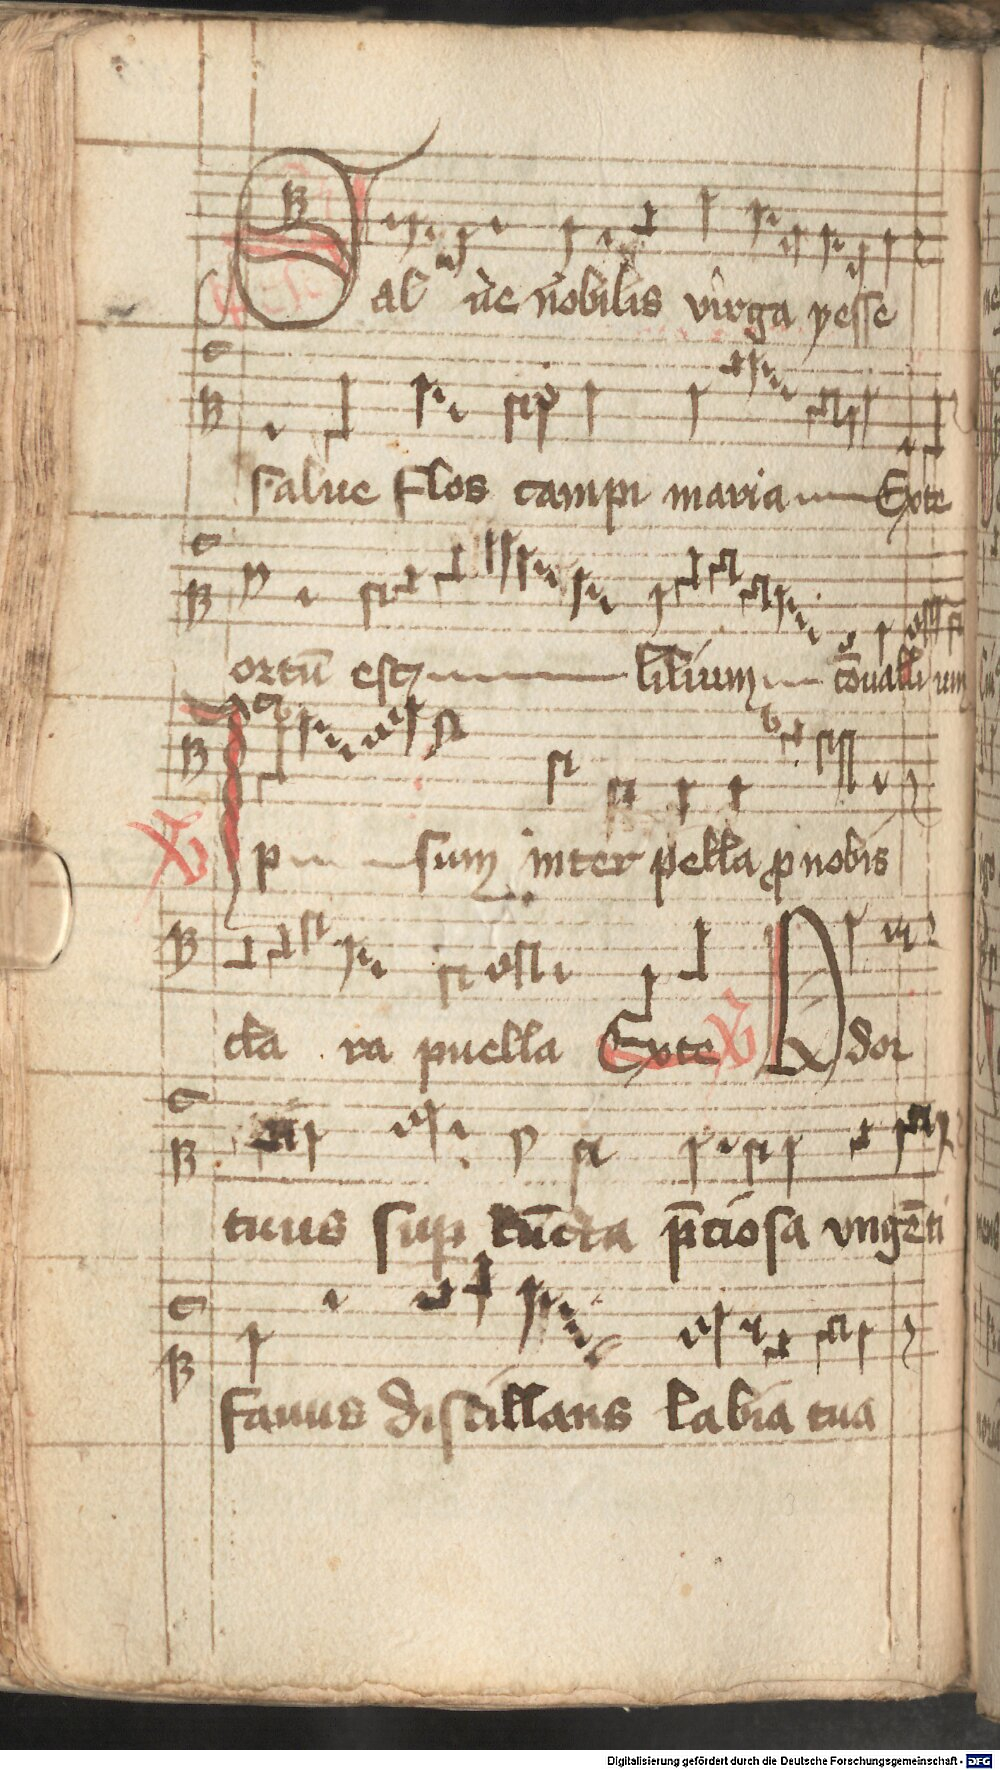 Sal ue nobilis virga yesse
salue flos campi maria Exte
ortū est lilium cōualli um
Ip sum inter pella ꝓ nobis
cla ra puella Exte Odor
tuus suꝑ cūcta p̄ciosa vngēti
fauus distillans labia tua
Digitalisierung gefördert durch die Deutsche Forschungsgemeinschaft - DFG